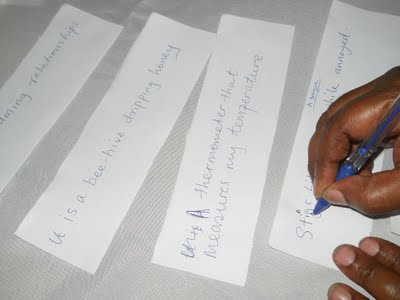 ming relationships
It is a bee-hive dripping honey
It is A thermometer that
measures my temperature
A tongue
Stirs
while annoyed.